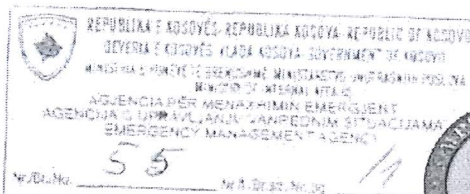 REPUBLIKA E KOSOVËS-REPUBLIKA KOSOVA-REPUBLIC OF KOSOVO
QEVERIA E KOSOVËS-VLADA KOSOVA-GOVERNMENT OF KOSOVO
MINISTRIA E PUNËVE TË BRENDSHME MINISTARSTVO UNUTRAŠNIH POSLOVA
MINISTRY OF INTERNAL AFFAIRS
AGJENCIA PËR MENAXHIMIN EMERGJENT
AGENCIJA O UPRAVLJANJU VANREDNIM SITUACIJAMA
EMERGENCY MANAGEMENT AGENCY
Nr./Br./No. 55